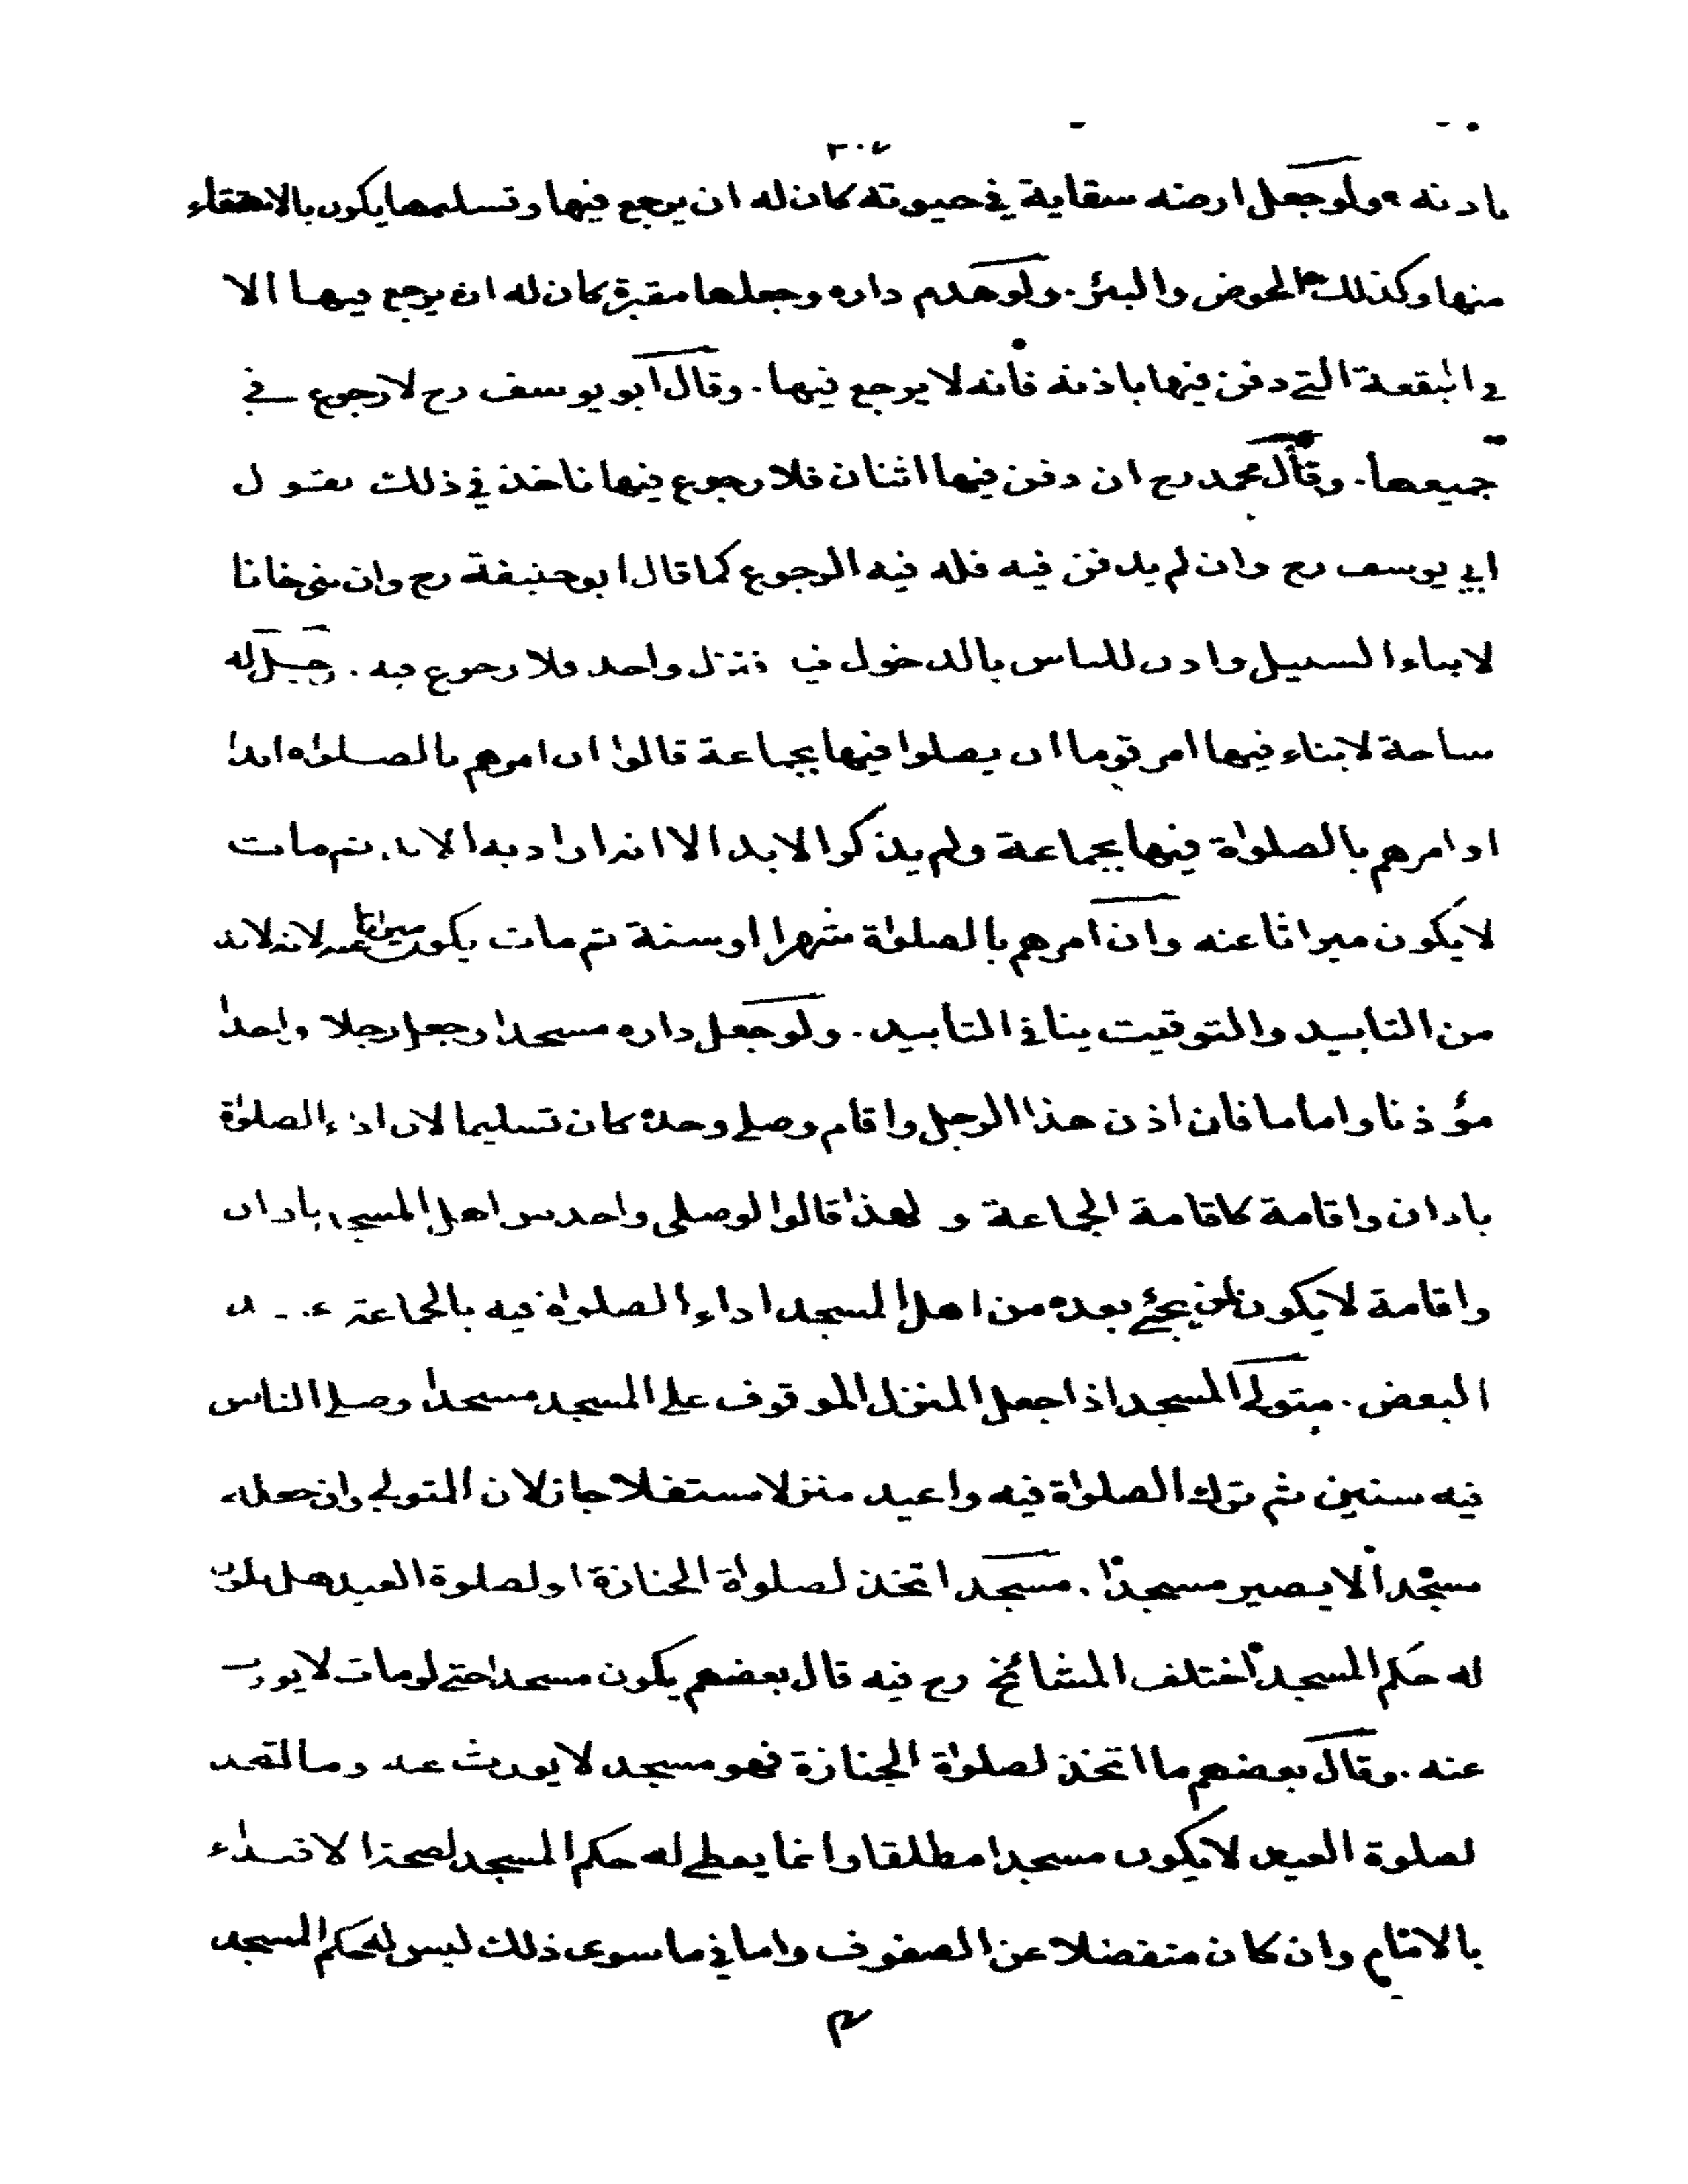 ٣٠٧
باذنه ولو جعل ارضه سقاية في حيوته كان له ان يرجع فيها وتسليمها يكون بالاستقاء
منها وكذلك الحوض والبئر. ولو هدم داره وجعلها مقبرة كان له ان يرجع فيها الا
في البقعة التي دفن فيها باذنه فانه لا يرجع فيها. وقال ابو يوسف رح لا رجوع في
جميعها. وقال محمد رح ان دفن فيها اثنان فلا رجوع فيها ناخذ في ذلك بقول
ابي يوسف رح وان لم يدفن فيه فله فيه الرجوع كما قال ابو حنيفة رح وان بنى خانا
لابناء السبيل واذن للناس بالدخول فيه فنزل واحد فلا رجوع فيه. رجل له
ساحة لا بناء فيها امر قوما ان يصلوا فيها بجماعة قالوا ان امرهم بالصلوة ابدا
او امرهم بالصلوة فيها بجماعة ولم يذكر الابد الا انه اراد به الابد ثم مات
لا يكون ميراثا عنه وان امرهم بالصلوة شهرا او سنة ثم مات يكون ميراثا عنه لانه لابد
من التابيد والتوقيت ينافي التابيد. ولو جعل داره مسجدا وجعل رجلا واحدا
مؤذنا واماما فان اذن هذا الرجل واقام وصلى وحده كان تسليما لان اداء الصلوة
باذان واقامة كاقامة الجماعة و لهذا قالوا لو صلى واحد من اهل المسجد باذان
واقامة لا يكون لمن يجئ بعده من اهل المسجد اداء الصلوة فيه بالجماعة عند
البعض. متولي المسجد اذا جعل المنزل الموقوف على المسجد مسجدا وصلى الناس
فيه سنين ثم ترك الصلوة فيه واعيد منزلا مستغلا جاز لان المتولي وان جعله
مسجدا لا يصير مسجدا. مسجد اتخذ لصلوة الجنازة او لصلوة العيد هل يكون
له حكم المسجد اختلف المشائخ رح فيه قال بعضهم يكون مسجدا حتى لو مات لا يورث
عنه. وقال بعضهم ما اتخذ لصلوة الجنازة فهو مسجد لا يورث عنه وما اتخذ
لصلوة العيد لا يكون مسجدا مطلقا وانما يعطى له حكم المسجد لصحة الاقتداء
بالامام وان كان منفضلا عن الصفوف واما في ما سوى ذلك ليس له حكم المسجد